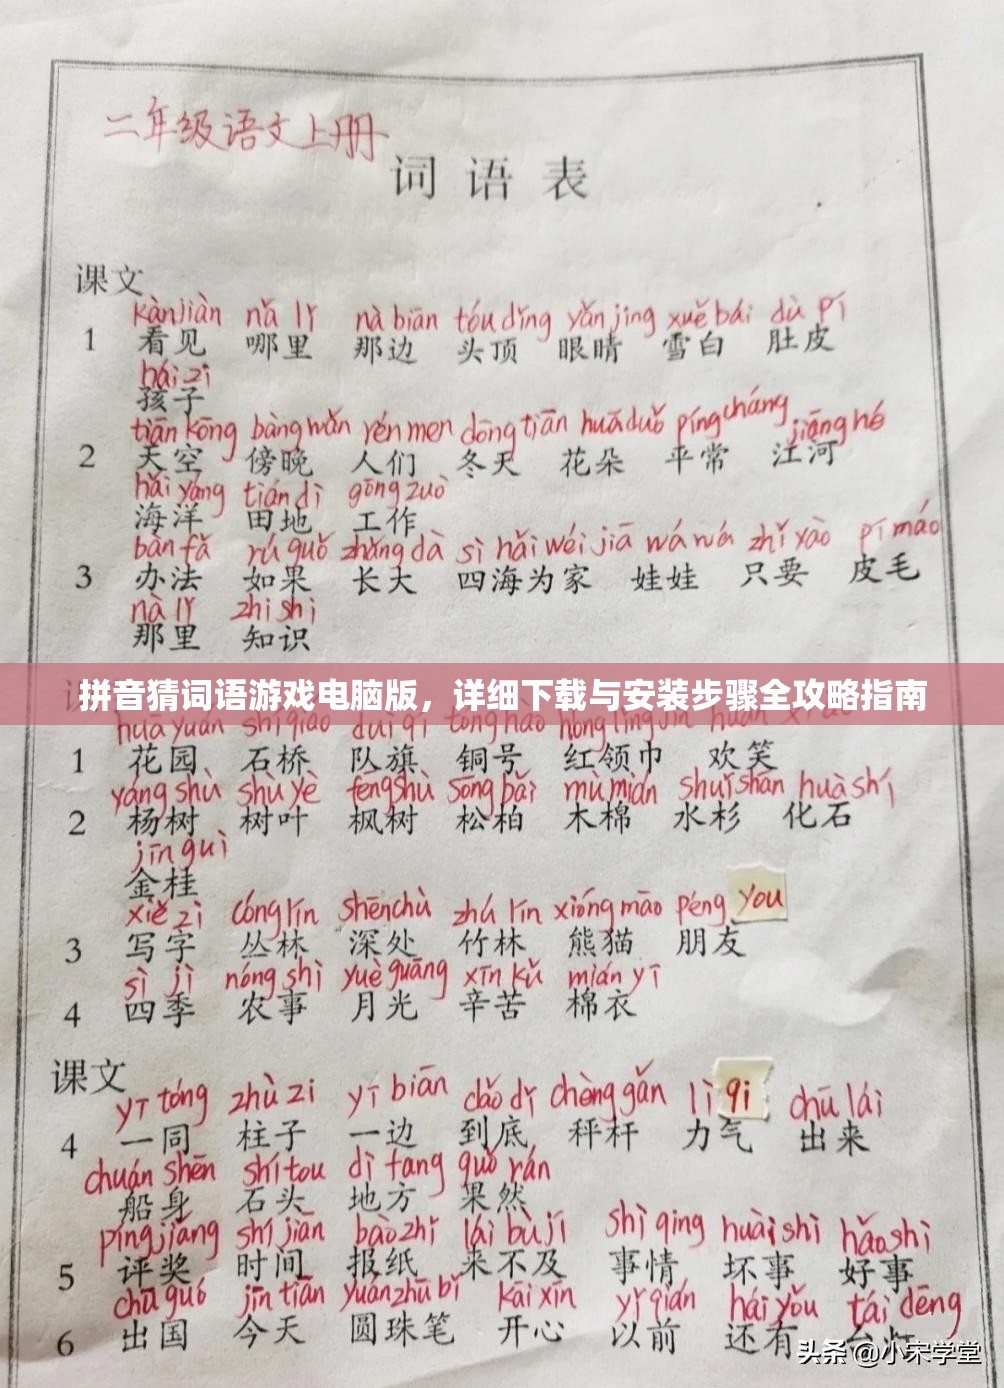 二年级语文上册
词语表
课文
kànjiàn nǎ lǐ nà biān tóu dǐng yǎn jing xuě bái dù pí
1 看见 哪里 那边 头顶 眼睛 雪白 肚皮
hái zi
孩子
tiān kōng bàng wǎn rén men dōng tiān huā duǒ píng cháng jiāng hé
2 天空 傍晚 人们 冬天 花朵 平常 江河
hǎi yáng tián dì gōng zuò
海洋 田地 工作
bàn fǎ rú guǒ zhǎng dà sì hǎi wéi jiā wá wá zhǐ yào pí máo
3 办法 如果 长大 四海为家 娃娃 只要 皮毛
nà lǐ zhī shi
那里 知识
拼音猜词语游戏电脑版，详细下载与安装步骤全攻略指南
huā yuán shí qiáo duì qí tóng hào hóng lǐng jīn huān xiào
1 花园 石桥 队旗 铜号 红领巾 欢笑
yáng shù shù yè fēng shù sōng bǎi mù mián shuǐ shān huà shí
2 杨树 树叶 枫树 松柏 木棉 水杉 化石
jīn guì
金桂
xiě zì cóng lín shēn chù zhú lín xióng māo péng you
3 写字 丛林 深处 竹林 熊猫 朋友
sì jì nóng shì yuè guāng xīn kǔ mián yī
4 四季 农事 月光 辛苦 棉衣
课文
yī tóng zhù zi yī biān dào dǐ chèng gǎn lì qi chū lái
4 一同 柱子 一边 到底 秤杆 力气 出来
chuán shēn shí tou dì fang guǒ rán
船身 石头 地方 果然
píng jiǎng shí jiān bào zhǐ lái bù jí shì qing huài shì hǎo shì
5 评奖 时间 报纸 来不及 事情 坏事 好事
chū guó jīn tiān yuán zhū bǐ kāi xīn yǐ qián hái yǒu tái dēng
6 出国 今天 圆珠笔 开心 以前 还有 台灯
头条 @小宋学堂